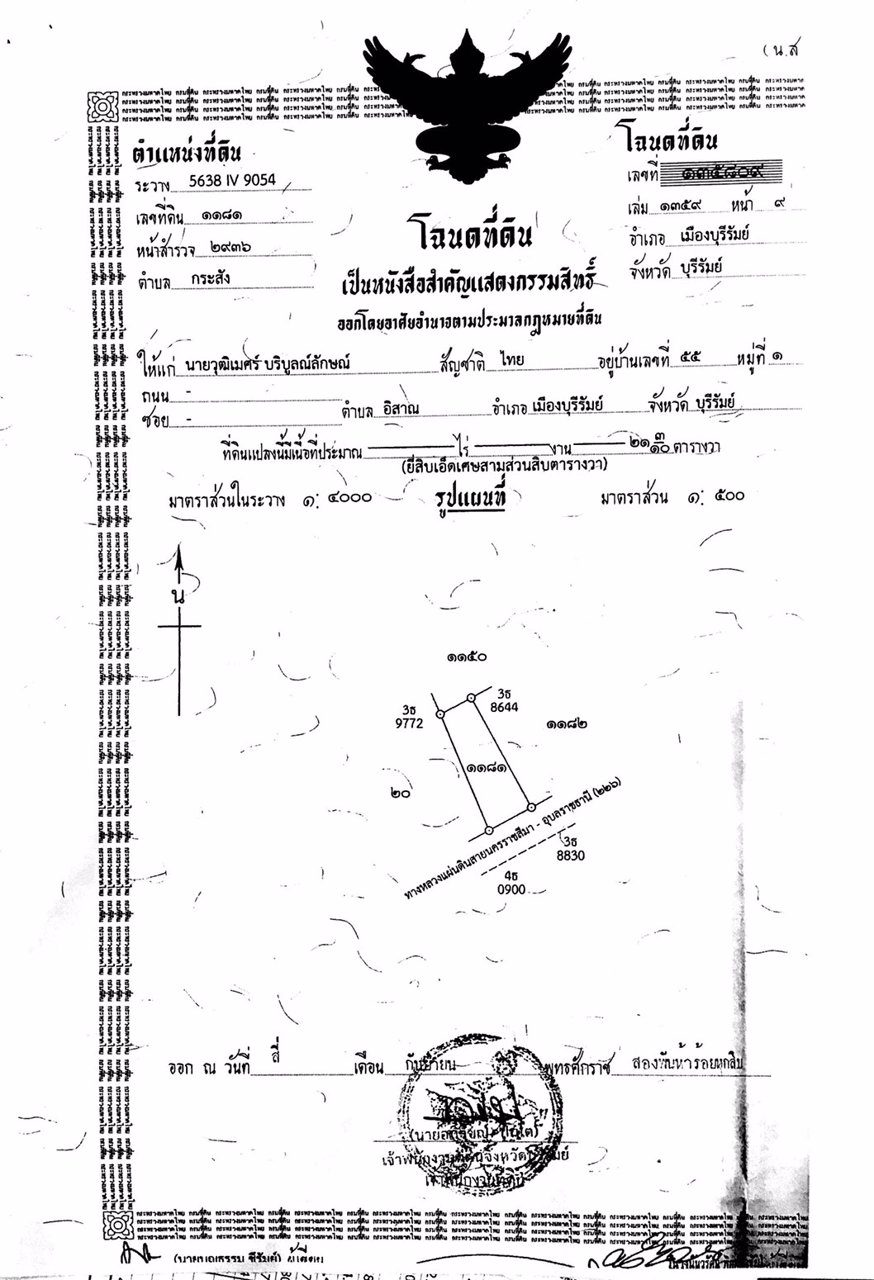 (น.ส
ตำแหน่งที่ดิน
ระวาง 5638 IV 9054
เลขที่ดิน ๑๑๘๑
หน้าสำรวจ ๒๙๓๖
ตำบล กระสัง
โฉนดที่ดิน
เลขที่ ๑๓๕๘๐๙
เล่ม ๑๓๕๙ หน้า ๙
อำเภอ เมืองบุรีรัมย์
จังหวัด บุรีรัมย์
โฉนดที่ดิน
เป็นหนังสือสำคัญแสดงกรรมสิทธิ์
ออกโดยอาศัยอำนาจตามประมวลกฎหมายที่ดิน
ให้แก่ นายวุฒิเมศร์ บริบูลณ์ลักษณ์ สัญชาติ ไทย อยู่บ้านเลขที่ ๕๕ หมู่ที่ ๑
ถนน -
ซอย - ตำบล อิสาณ อำเภอ เมืองบุรีรัมย์ จังหวัด บุรีรัมย์
ที่ดินแปลงนี้มีเนื้อที่ประมาณ ไร่ งาน ๒๑ ๓/๑๐ ตารางวา
(ยี่สิบเอ็ดเศษสามส่วนสิบตารางวา)
มาตราส่วนในระวาง ๑: ๔๐๐๐ รูปแผนที่ มาตราส่วน ๑: ๕๐๐
น
๑๑๕๐
3ธ
9772
3ธ
8644
๑๑๘๒
๑๑๘๑
๒๐
ทางหลวงแผ่นดินสายนครราชสีมา - อุบลราชธานี (๒๒๖)
3ธ
8830
4ธ
0900
ออก ณ วันที่ สี่ เดือน กันยายน พุทธศักราช สองพันห้าร้อยหกสิบ
เจ้าพนักงานที่ดินจังหวัดบุรีรัมย์
เจ้าพนักงานที่ดิน